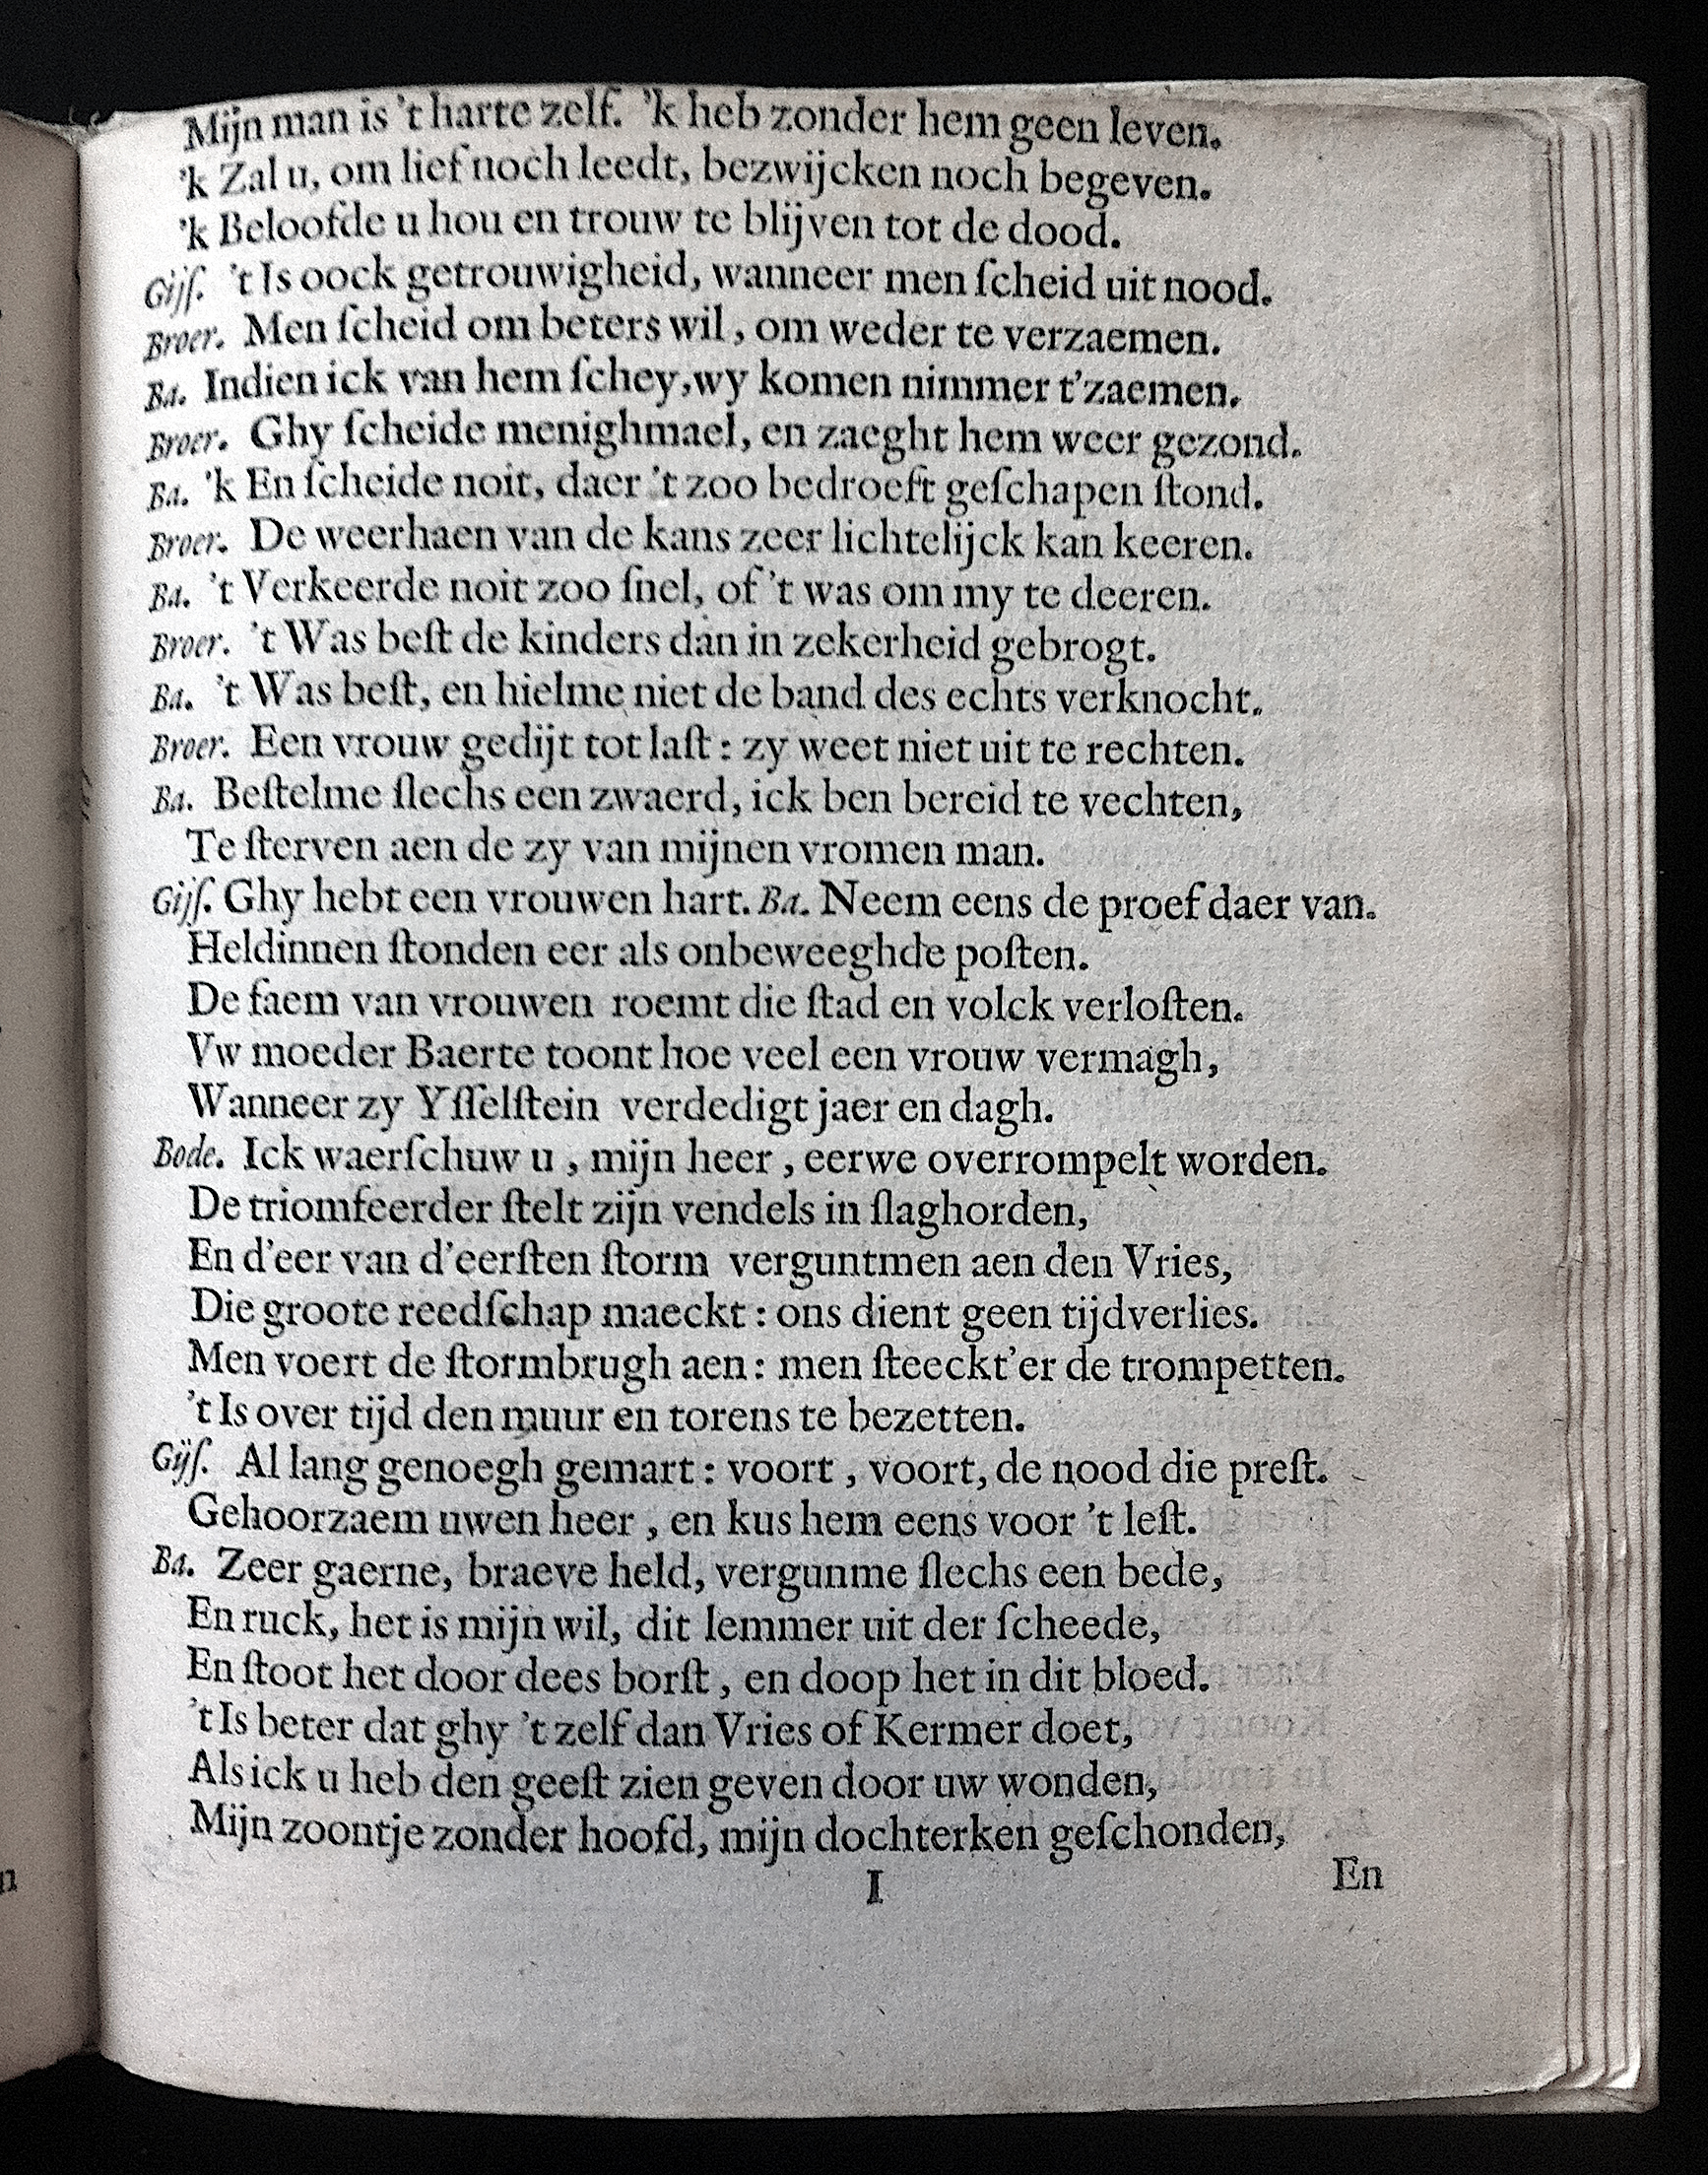 Mijn man is 't harte zelf. 'k heb zonder hem geen leven.
'k Zal u, om lief noch leedt, bezwijcken noch begeven.
'k Beloofde u hou en trouw te blijven tot de dood.
Gijſ. 't Is oock getrouwigheid, wanneer men ſcheid uit nood.
Broer. Men ſcheid om beters wil, om weder te verzaemen.
Ba. Indien ick van hem ſchey,wy komen nimmer t'zaemen.
Broer. Ghy ſcheide menighmael, en zaeght hem weer gezond.
Ba. 'k En ſcheide noit, daer 't zoo bedroeft geſchapen ſtond.
Broer. De weerhaen van de kans zeer lichtelijck kan keeren.
Ba. 't Verkeerde noit zoo ſnel, of 't was om my te deeren.
Broer. 't Was beſt de kinders dan in zekerheid gebrogt.
Ba. 't Was beſt, en hielme niet de band des echts verknocht.
Broer. Een vrouw gedijt tot laſt: zy weet niet uit te rechten.
Ba. Beſtelme ſlechs een zwaerd, ick ben bereid te vechten,
Te ſterven aen de zy van mijnen vromen man.
Gijſ. Ghy hebt een vrouwen hart. Ba. Neem eens de proef daer van.
Heldinnen ſtonden eer als onbeweeghde poſten.
De faem van vrouwen roemt die ſtad en volck verloſten.
Vw moeder Baerte toont hoe veel een vrouw vermagh,
Wanneer zy Yſſelſtein verdedigt jaer en dagh.
Bode. Ick waerſchuw u, mijn heer, eerwe overrompelt worden.
De triomfeerder ſtelt zijn vendels in ſlaghorden,
En d'eer van d'eerſten ſtorm verguntmen aen den Vries,
Die groote reedſchap maeckt: ons dient geen tijdverlies.
Men voert de ſtormbrugh aen: men ſteeckt'er de trompetten.
't Is over tijd den muur en torens te bezetten.
Gijſ. Al lang genoegh gemart: voort, voort, de nood die preſt.
Gehoorzaem uwen heer, en kus hem eens voor 't leſt.
Ba. Zeer gaerne, braeve held, vergunme ſlechs een bede,
En ruck, het is mijn wil, dit lemmer uit der ſcheede,
En ſtoot het door dees borſt, en doop het in dit bloed.
't Is beter dat ghy 't zelf dan Vries of Kermer doet,
Als ick u heb den geeſt zien geven door uw wonden,
Mijn zoontje zonder hoofd, mijn dochterken geſchonden,
I
En